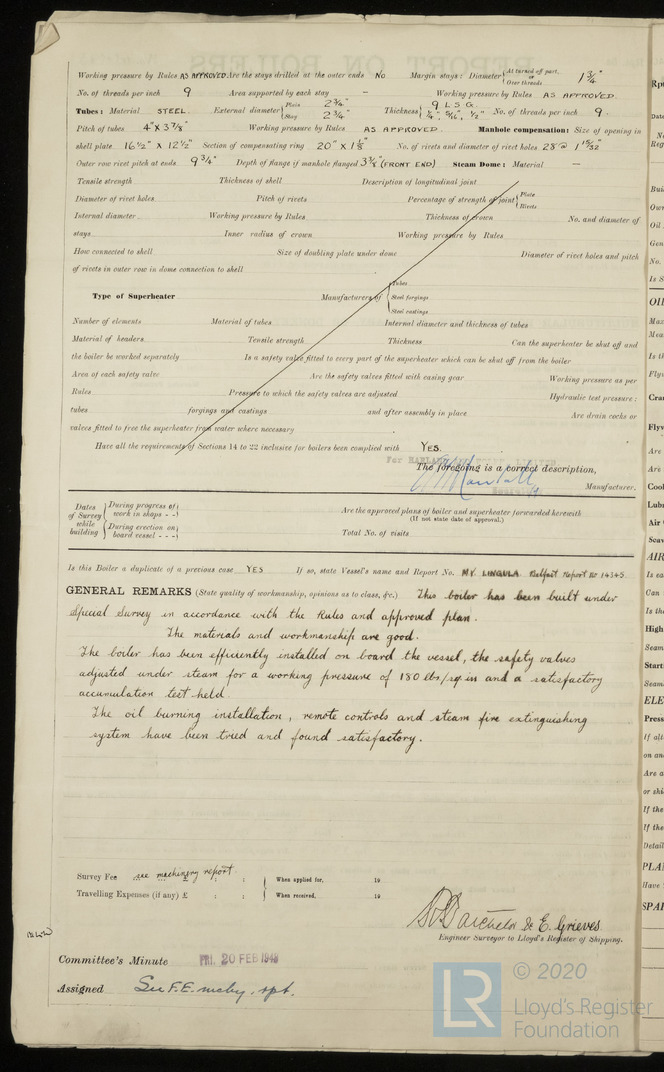 Working pressure by Rules AS APPROVED. Are the stays drilled at the outer ends NO Margin stays: Diameter { At turned off part, or Over threads 1 3/4"
No. of threads per inch 9 Area supported by each stay — Working pressure by Rules AS APPROVED
Tubes: Material STEEL. External diameter { Plain 2 3/4" Stay 2 3/4" Thickness { 9 L.S.G. 1/4", 5/16", 1/2" No. of threads per inch 9.
Pitch of tubes 4" x 3 7/8" Working pressure by Rules AS APPROVED. Manhole compensation: Size of opening in
shell plate 16 1/2" x 12 1/2" Section of compensating ring 20" x 1 1/8" No. of rivets and diameter of rivet holes 28 @ 1 15/32"
Outer row rivet pitch at ends 9 3/4" Depth of flange if manhole flanged 3 3/8" (FRONT END) Steam Dome: Material —
Tensile strength Thickness of shell Description of longitudinal joint
Diameter of rivet holes Pitch of rivets Percentage of strength of joint { Plate Rivets
Internal diameter Working pressure by Rules Thickness of crown No. and diameter of
stays Inner radius of crown Working pressure by Rules
How connected to shell Size of doubling plate under dome Diameter of rivet holes and pitch
of rivets in outer row in dome connection to shell
Type of Superheater Manufacturers of { Tubes Steel forgings Steel castings
Number of elements Material of tubes Internal diameter and thickness of tubes
Material of headers Tensile strength Thickness Can the superheater be shut off and
the boiler be worked separately Is a safety valve fitted to every part of the superheater which can be shut off from the boiler
Area of each safety valve Are the safety valves fitted with easing gear Working pressure as per
Rules Pressure to which the safety valves are adjusted Hydraulic test pressure:
tubes forgings and castings and after assembly in place Are drain cocks or
valves fitted to free the superheater from water where necessary
Have all the requirements of Sections 14 to 22 inclusive for boilers been complied with YES.
The foregoing is a correct description,
Manufacturer.
Dates of Survey while building { During progress of work in shops - - During erection on board vessel - - -
Are the approved plans of boiler and superheater forwarded herewith
(If not state date of approval.)
Total No. of visits
Is this Boiler a duplicate of a previous case YES If so, state Vessel's name and Report No. M.V. LINGULA Belfast Report No 14345
GENERAL REMARKS (State quality of workmanship, opinions as to class, &c.) This boiler has been built under
Special Survey in accordance with the Rules and approved plan.
The materials and workmanship are good.
The boiler has been efficiently installed on board the vessel, the safety valves
adjusted under steam for a working pressure of 180 lbs/sq in and a satisfactory
accumulation test held.
The oil burning installation, remote controls and steam fire extinguishing
system have been tried and found satisfactory.
Survey Fee see machinery report : : { When applied for, 19
Travelling Expenses (if any) £ : : { When received, 19
& E. Grieves
Engineer Surveyor to Lloyd's Register of Shipping.
Committee's Minute FRI. 20 FEB 1948
Assigned See F.E. mchy. rpt.
LR
© 2020
Lloyd's Register
Foundation